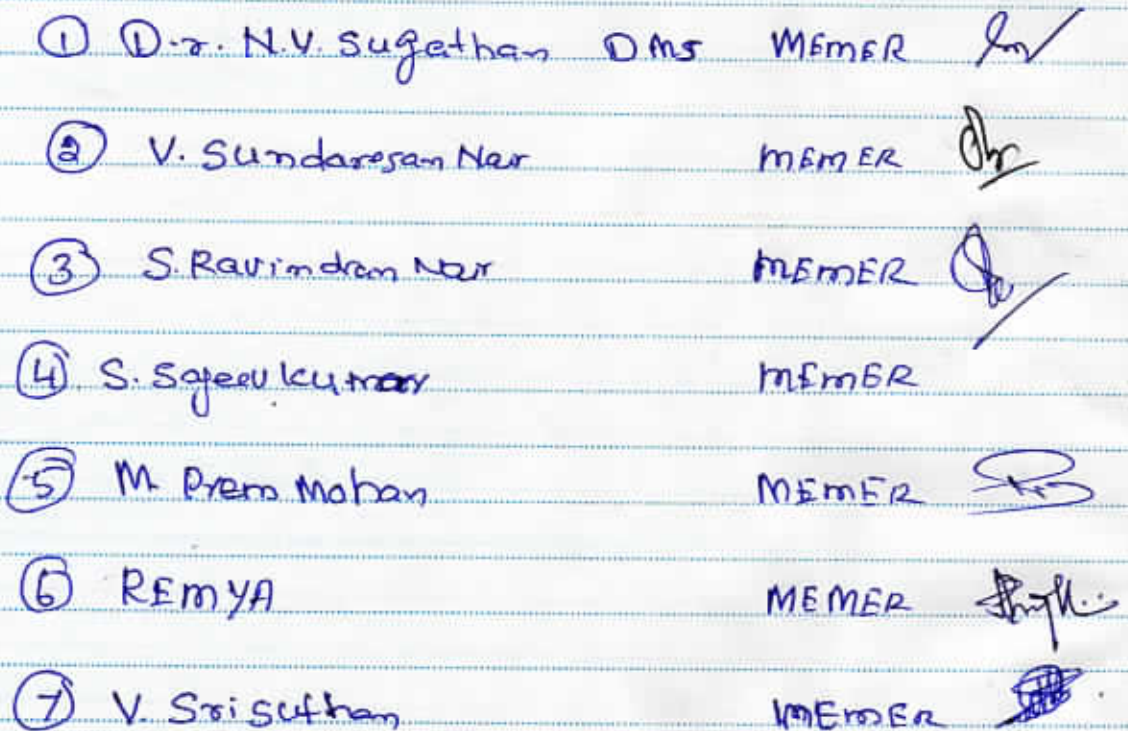 ① D.r. N.V. Sugathan DMS MEMER
② V. Sundaresan Nar MEMER
③ S. Ravindran Nair MEMER
④ S. Sajeev kumar MEMER
⑤ M. Prem Mohan MEMER
⑥ REMYA MEMER
⑦ V. Srisuthan MEMER